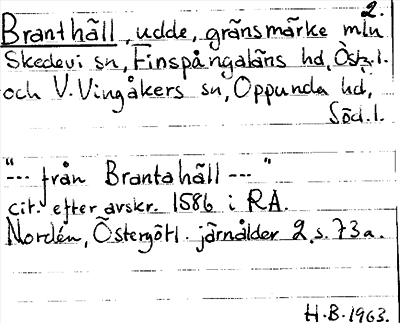 2.
Branthäll, udde, gränsmärke mln
Skedevi sn, Finspångaläns hd, Östg.l.
och V. Vingåkers sn, Oppunda hd,
Söd.l.
"--- från Brantahäll --- "
cit. efter avskr. 1586 i RA.
Nordén, Östergötl. järnålder 2, s. 73 a.
H.B. 1963.